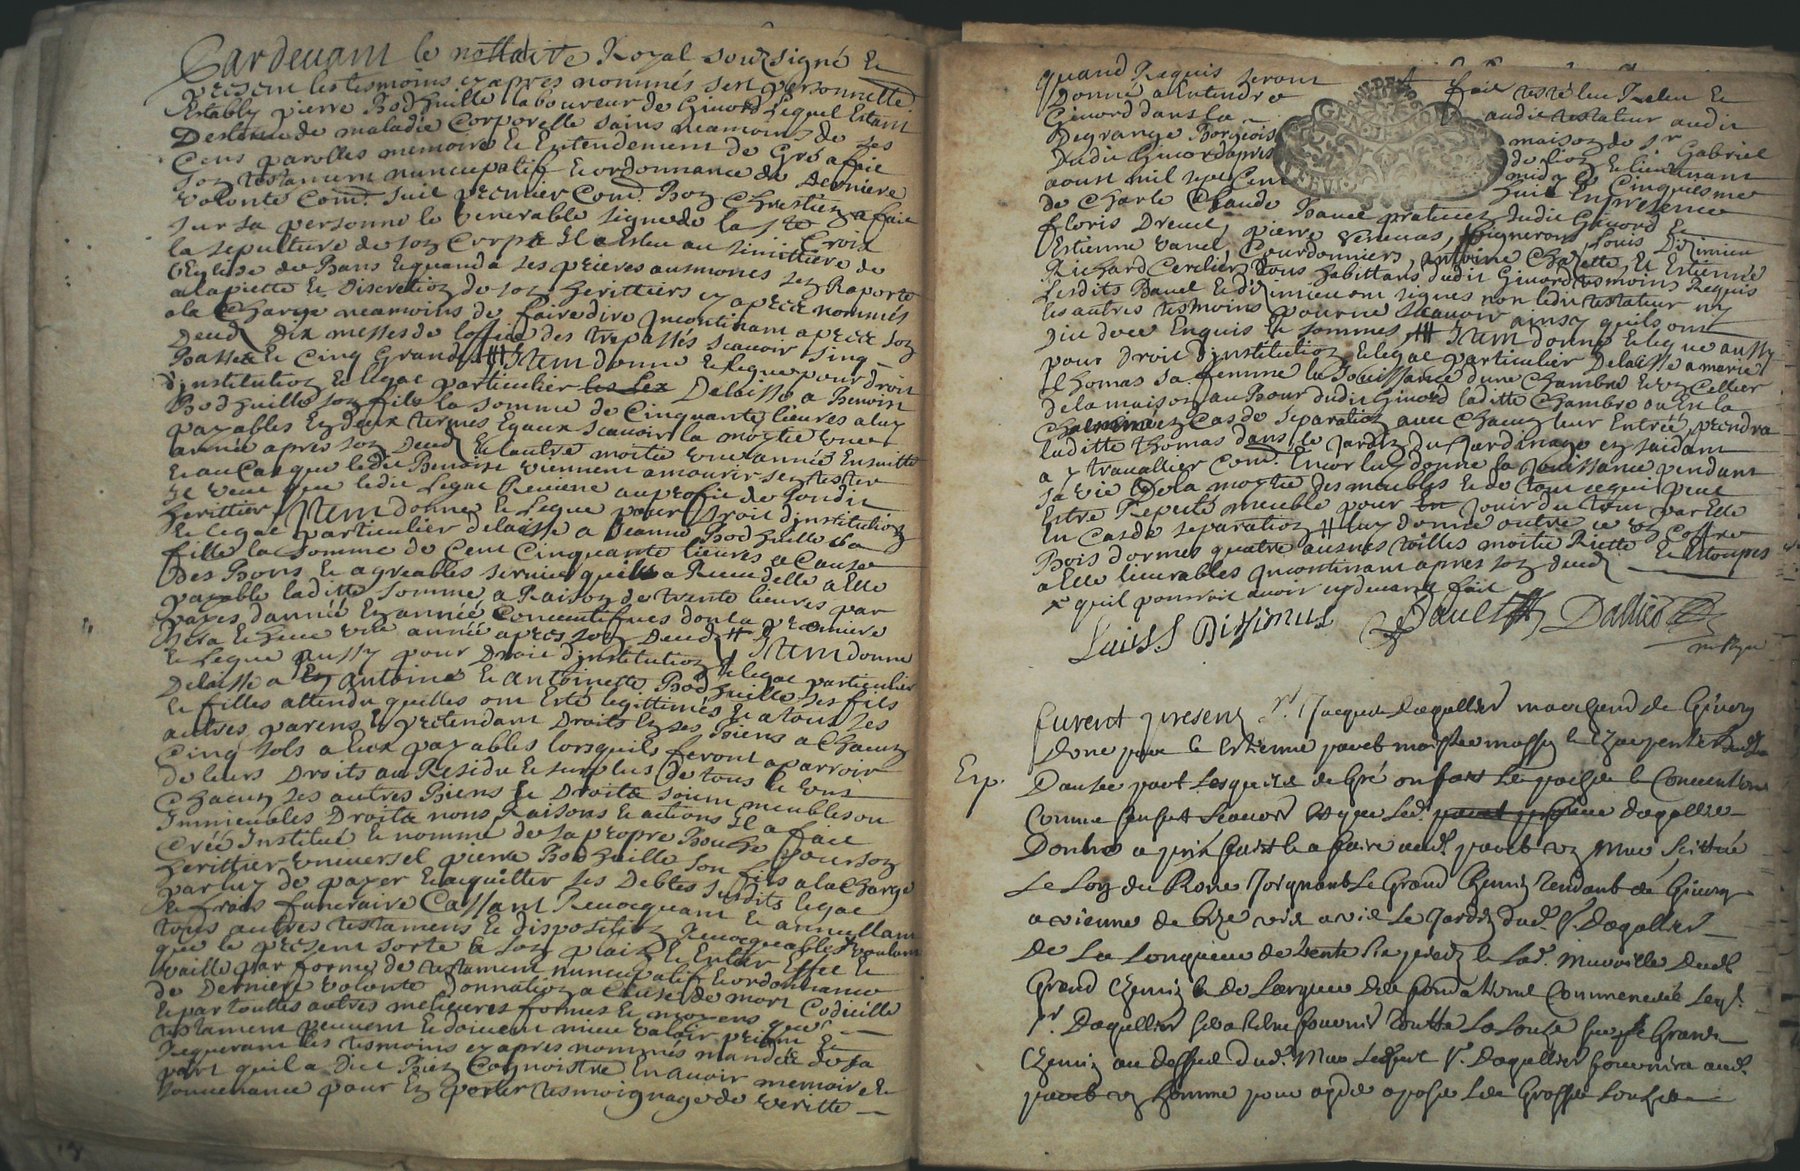 Pardevant le nottaire Royal soubsigné Et
present les tesmoins cy apres nommés sest personnelle
Estably pierre Bodhuille laboureur de Givord Lequel Estant
de maladie Corporelle sains neamoins de ses
Cens parolles memoire Et Entendement de Gré a fait
son testament nuncupatif Et ordonnance de Derniere
volonte Comē. suit premier Comē. Bon Chrestien a fait
sur sa personne le venerable signe de la Ste Croix
la sepulture de son Corps Il a Esleu au simittiere de
l'Eglise de Bans Et quand a ses prieres aumones sen Raporte
a la piette Et Discretion de son heritiers cy apres nommés
a la Charge neamoins de faire dire Incontinant apres son
Deud Dix messes de l'office des trepassés scavoir sinq
Basses Et Cinq Grandes Item donne Et legue pour droit
d'institution Et legat particulier Delaisse a Benoist
Bodhuille son fils la somme de Cinquante lieures a luy
payables En deux termes Egaux scavoir la moitie une
année apres son Deud Et l'autre moitie une année Ensuitte
Et au Cas que ledit Benoist viennent a mourir sen tester
Je veut que ledit Legat Revienne au profit de sondit
herittier Item donne Et Legue pour droit d'institution
Et legat particulier delaisse a Jeanne Bodhuille sa
fille la somme de Cent Cinquante lieures a Cause
Des Bons Et agreables services quil a Receu delle a Elle
payable laditte somme a Raison de trente lieures par
payes d'année En année Consecutifves dont la premiere
sera Et heue une année apres son Deud Item donne
Et Legue aussy pour Droit d'institution Et legat particulier
Delaisse a Antoine Et Antoinette Bodhuille ses fils
Et filles attendu quelles ont Esté legittimés Et a tous ses
autres parens Et pretendant Droits En ses Biens a Chacun
Cinq sols a Eux payables lorsquils feront aparroir
de leurs Droits au Residu Et surplus de tous Et uns
Chacun ses autres Biens Et Droits soient meubles ou
Immeubles Droits noms Raisons Et actions Il a fait
Crée Institué Et nommé de sa propre Bouche pour son
herittier universel pierre Bodhuille son fils a la Charge
par luy de payer Et acquitter ses Debtes susdits legat
Et frais funeraire Cassant Revocquant Et annullant
tous autres testamens Et disposition Revocquables voulant
que le present sorte a son plain Et Entier Effet Et
vaille par forme de testament nuncupatif Et ordonnance
de Derniere volonte donnation a Cause de mort Codicille
Et par touttes autres melieures formes Et moyens que
testament peuvent Et doivent mieu valoir priant Et
Requerant les tesmoins cy apres nommés mandés de sa
part quil a Dit Bien Cognoistre En avoir memoire Et
souvenance pour En porter tesmoignage de veritté
quand Requis seront
Donné a Entendre
Givord dans la
Degrange Borgeois
Dudit Givord apres
aoust mil sept Cent
fait testé leu Releu Et
audit testateur audit
maison de sr Gabriel
de lion Et lieutenant
midy le Cinquesme
huit En presence
de Charle Claude Bauel praticien dudit Givord
floris Dreuet, pierre venevas, vignerons, Louis Dissimieu
Estienne vanel Courdonniers, Antoine Chazette Et Estienne
Richard Cerclier tous habittans dudit Givord tesmoins Requis
lesdits Bauel Et dissimieu ont signes non ledit testateur ny
les autres tesmoins pour ne scavoir ainsy quils ont
dit de ce Enquis Et sommés Item donne Et legue aussy
pour droit d'institution Et legat particulier Delaisse a marie
Thomas sa femme la Jouissance dune Chambre Et un Cellier
de la maison au Bour dudit Givord laditte Chambre ou En la
En Cas de separation avec Chacun leur Entrée, prendra
laditte thomas dans le Jardin du Jardinage En saidant
a y travallier Comē. Encor luy donne la Jouissance pendant
sa vie De la moitie des meubles Et de tout ce qui peut
Estre Reputé meuble pour Jouir du tout par Elle
En Cas de separation luy donne outre ce un Coffre
Bois dormes quatre ausnes toilles moitie Riette Et Estoupes
a Elle lieurables Incontinant apres son deud
quil pourroit avoir cy devant fait
Louis Dissimus Bauel Dallier
no. Royal
furent presens Sr. Jacques Dagallier marchand de Givors
Done part Et Estienne pavet maistre masson Et Charpentier
Exp. Dautre part Lesquels de Gré ont fait les prisfaits Et Conventions
Comme sensuit Scavoir est que led. Dagallier
Donne a prix fait a faire aud. pavet un Mur scittué
Le Lon du Rosne Joignant Le Grand Chemin tendant de Givors
a vienne de bize vis a vis Le Jardin dud. Sr. Dagallier
de La Longueur de trente six pieds Et Lad. Muraille dud.
Grand Chemin Et de Largeur des fondations Convenable Led.
Sr. Dagallier sera tenu fournir toutte La Chaux sur le Grand
Chemin au dessus dud. Mur Ledit Sr. Dagallier fournira aud.
pavet un homme pour ayder a poser Les Grosses